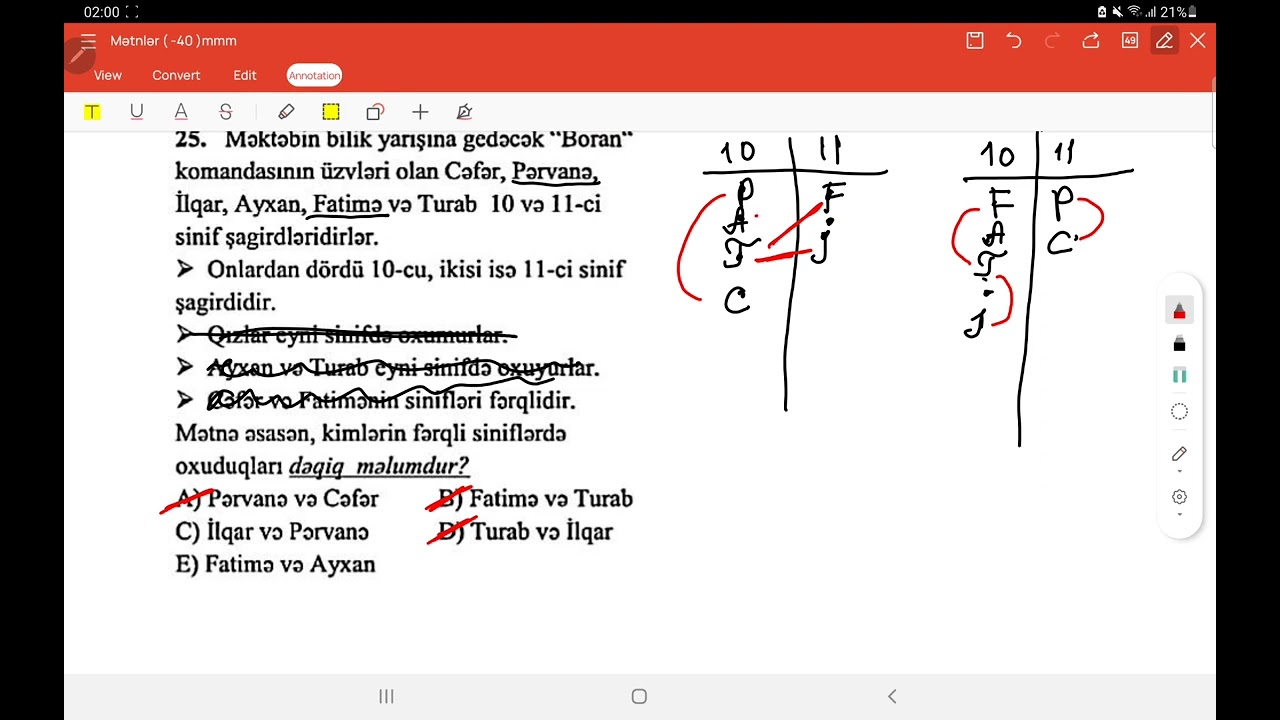 02:00
21%
Mətnlər ( -40 )mmm
49
View Convert Edit Annotation
T U A S
25. Məktəbin bilik yarışına gedəcək "Boran"
komandasının üzvləri olan Cəfər, Pərvanə,
İlqar, Ayxan, Fatimə və Turab 10 və 11-ci
sinif şagirdləridirlər.
➤ Onlardan dördü 10-cu, ikisi isə 11-ci sinif
şagirdidir.
➤ Qızlar eyni sinifdə oxumurlar.
➤ Ayxan və Turab eyni sinifdə oxuyurlar.
➤ Cəfər və Fatimənin sinifləri fərqlidir.
Mətnə əsasən, kimlərin fərqli siniflərdə
oxuduqları dəqiq məlumdur?
A) Pərvanə və Cəfər B) Fatimə və Turab
C) İlqar və Pərvanə D) Turab və İlqar
E) Fatimə və Ayxan
10 11
P F
A İ
T
C
10 11
F P
A C
T
İ